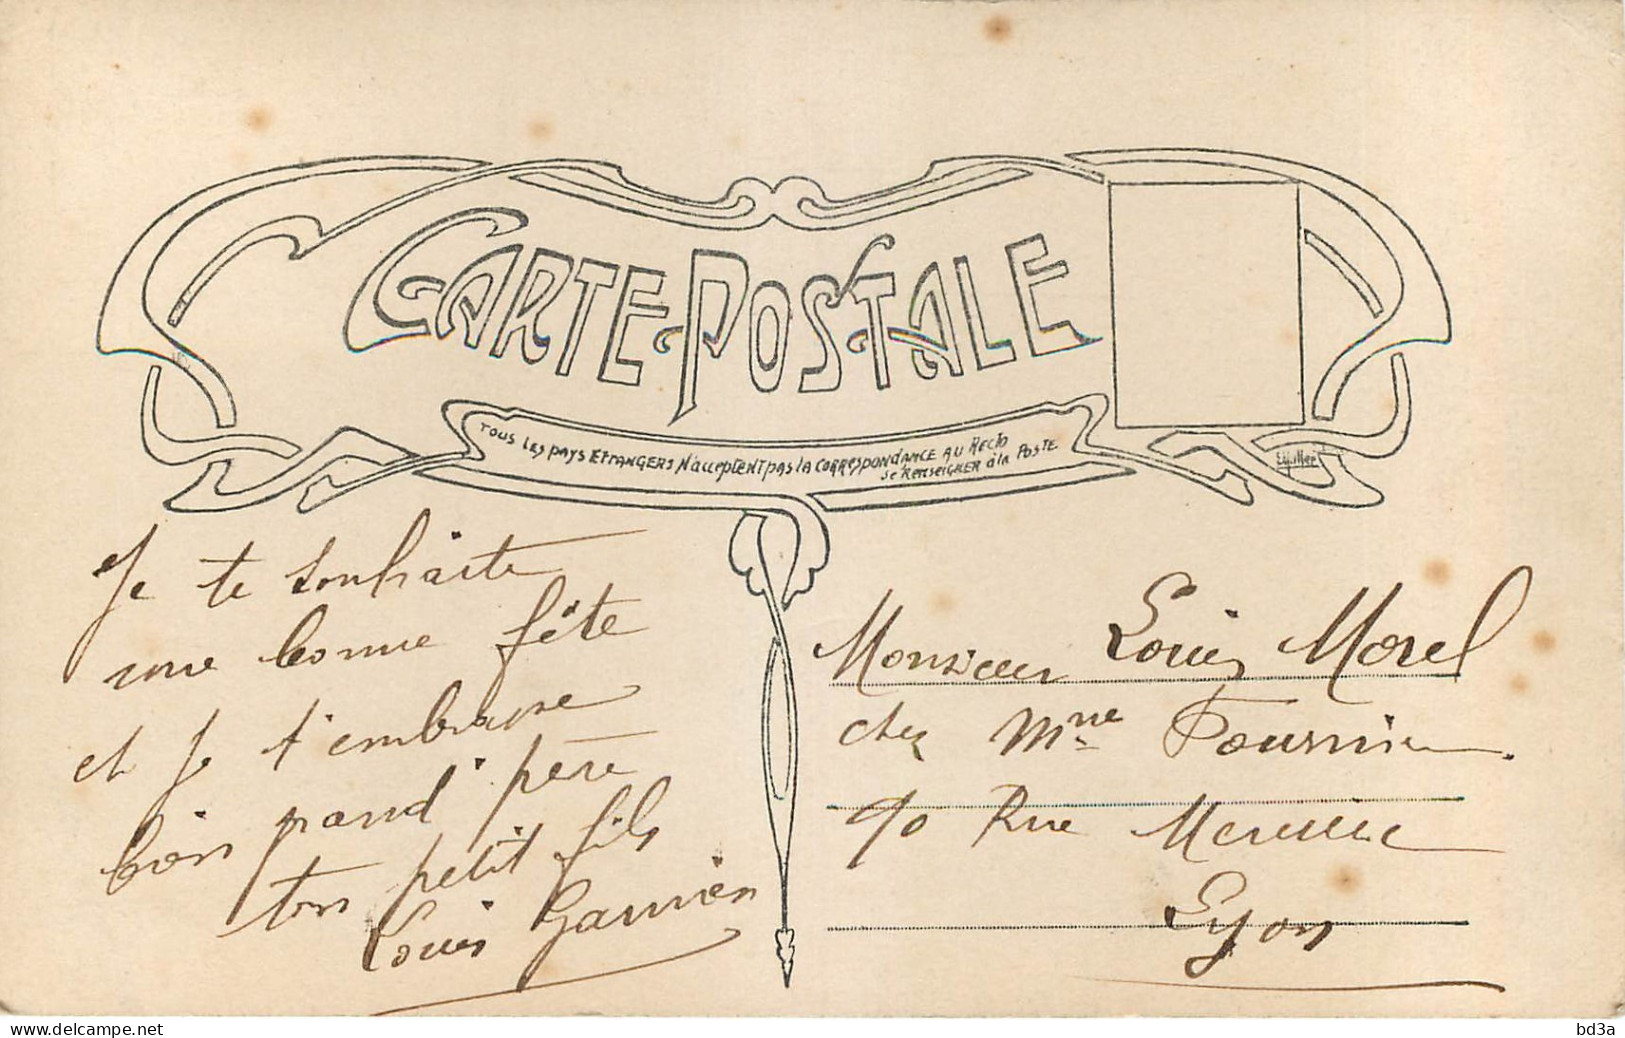 CARTE-POSTALE
TOUS LES PAYS ETRANGERS N'ACCEPTENT PAS LA CORRESPONDANCE AU RECTO
SE RENSEIGNER À LA POSTE
Je te souhaite
une bonne fête
et je t'embrasse
bon grand père
ton petit fils
Louis
Monsieur Louis Morel
chez Mme Fournier
90 Rue
Lyon
delcampe.net
bd3a